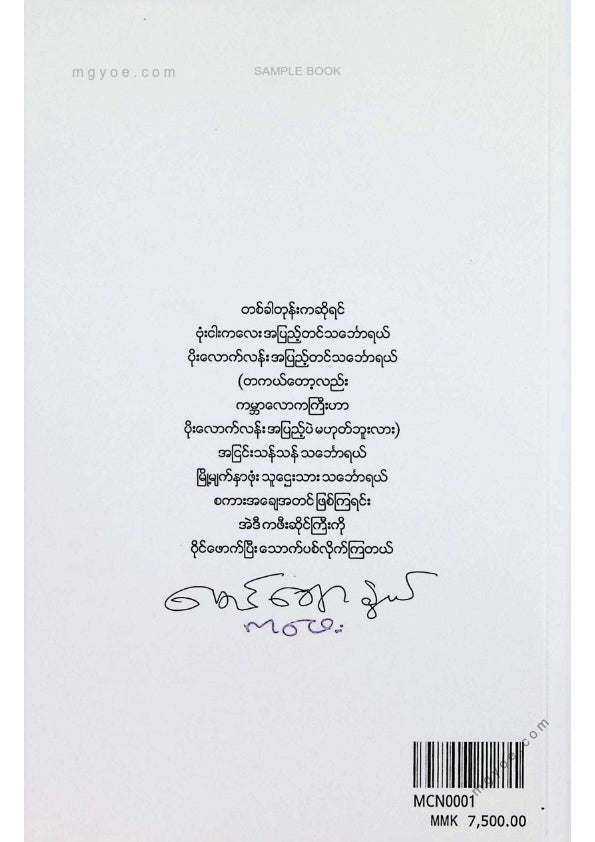 mgyoe.com SAMPLE BOOK
တစ်ခါတုန်းကဆိုရင်
ဗုံးငါးကလေး အပြည့်တင်သင်္ဘောရယ်
ပိုးလောက်လန်း အပြည့်တင်သင်္ဘောရယ်
(တကယ်တော့လည်း
ကမ္ဘာလောကကြီးဟာ
ပိုးလောက်လန်း အပြည့်ပဲ မဟုတ်ဘူးလား)
အငြင်းသန်သန် သင်္ဘောရယ်
မြို့မျက်နှာဖုံး သူဌေးသား သင်္ဘောရယ်
စကားအချေအတင် ဖြစ်ကြရင်း
အဲဒီ ကဖီးဆိုင်ကြီးကို
ဝိုင်ဖောက်ပြီး သောက်ပစ်လိုက်ကြတယ်
မောင်အောင်ခွယ်
mgyoe.com
MCN0001
MMK 7,500.00